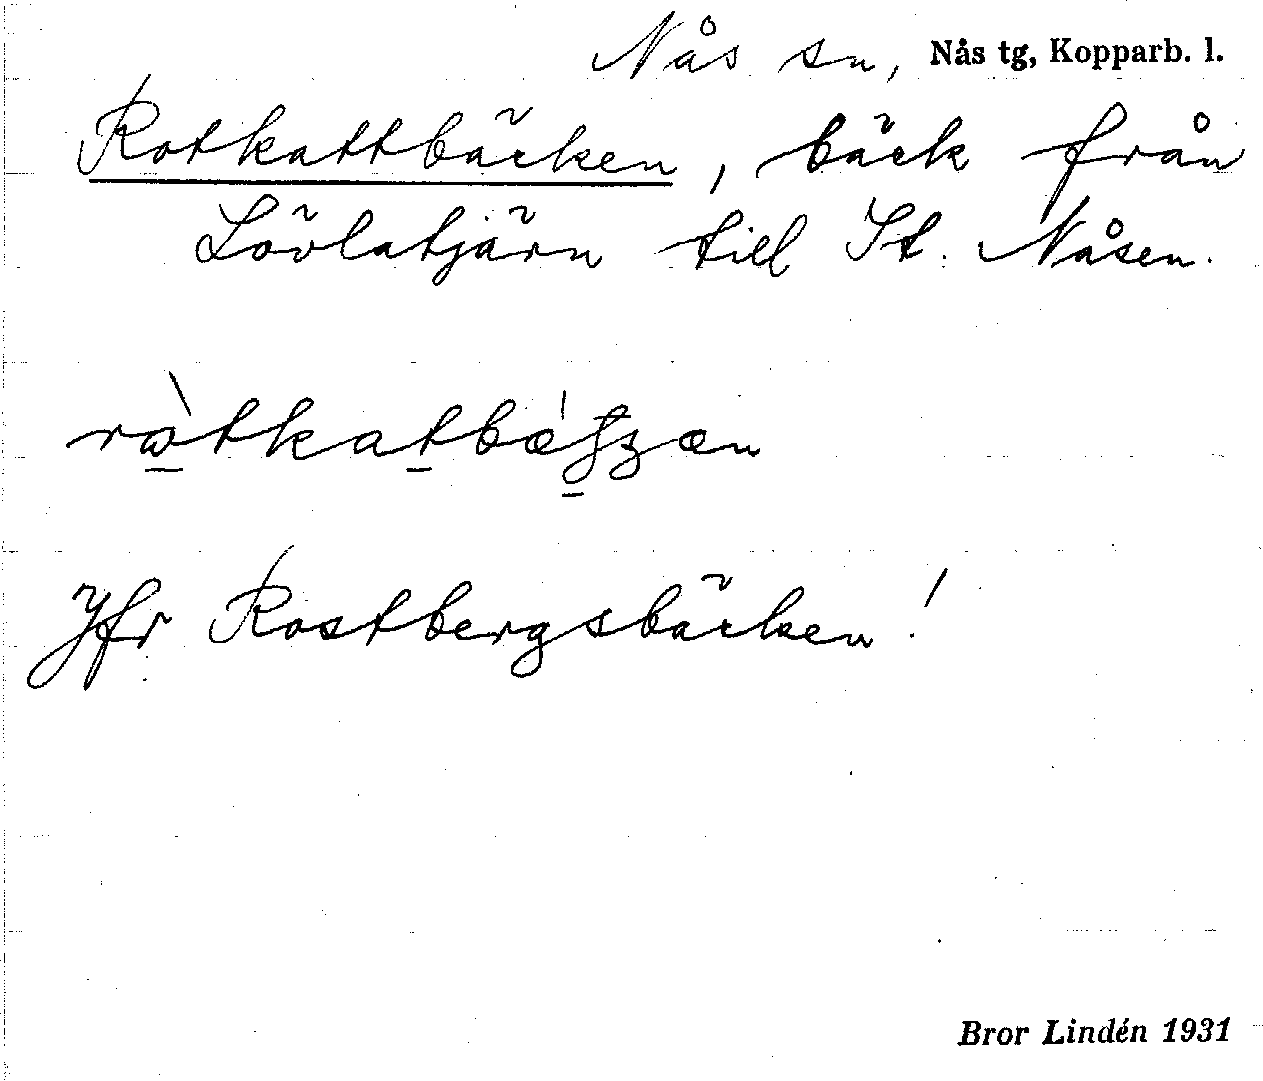 Nås sn, Nås tg, Kopparb. l.
Rotkattbäcken, bäck från
Lövlatjärn till St. Nåsen.
Jfr Rostbergsbäcken!
Bror Lindén 1931